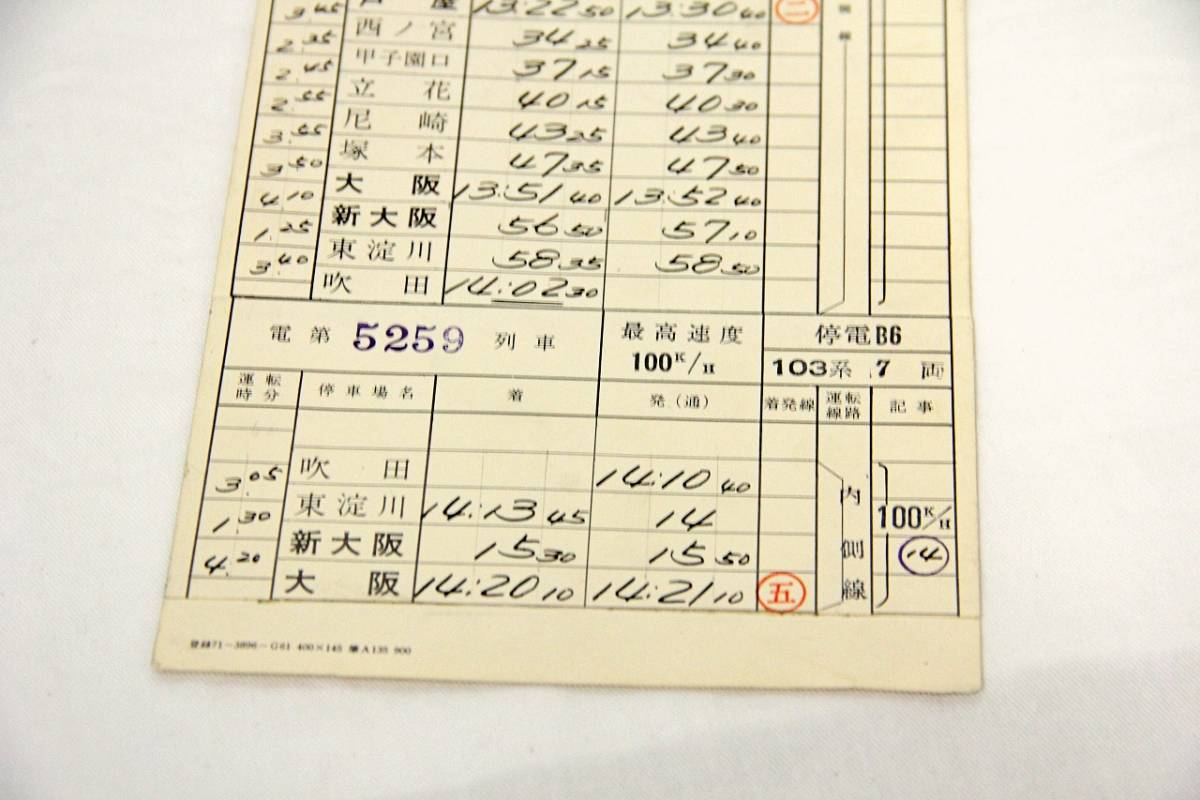 3 45 芦屋 13:22 50 13:30 40 二
2 35 西ノ宮 34 25 34 40
2 45 甲子園口 37 15 37 30
2 55 立花 40 15 40 30
3 55 尼崎 43 25 43 40
3 50 塚本 47 35 47 50
4 10 大阪 13:51 40 13:52 40
1 25 新大阪 56 50 57 10
3 40 東淀川 58 35 58 50
吹田 14:02 30
電第 5259 列車 最高速度 100K/H 停電B6
103系 7 両
運転時分 停車場名 着 発(通) 着発線 運転線路 記事
3 05 吹田 14:10 40 内側線 100K/H 14
1 30 東淀川 14:13 45 14
4 20 新大阪 15 30 15 50
大阪 14:20 10 14:21 10 五
登録71-3896-G61 400×145 A135 900